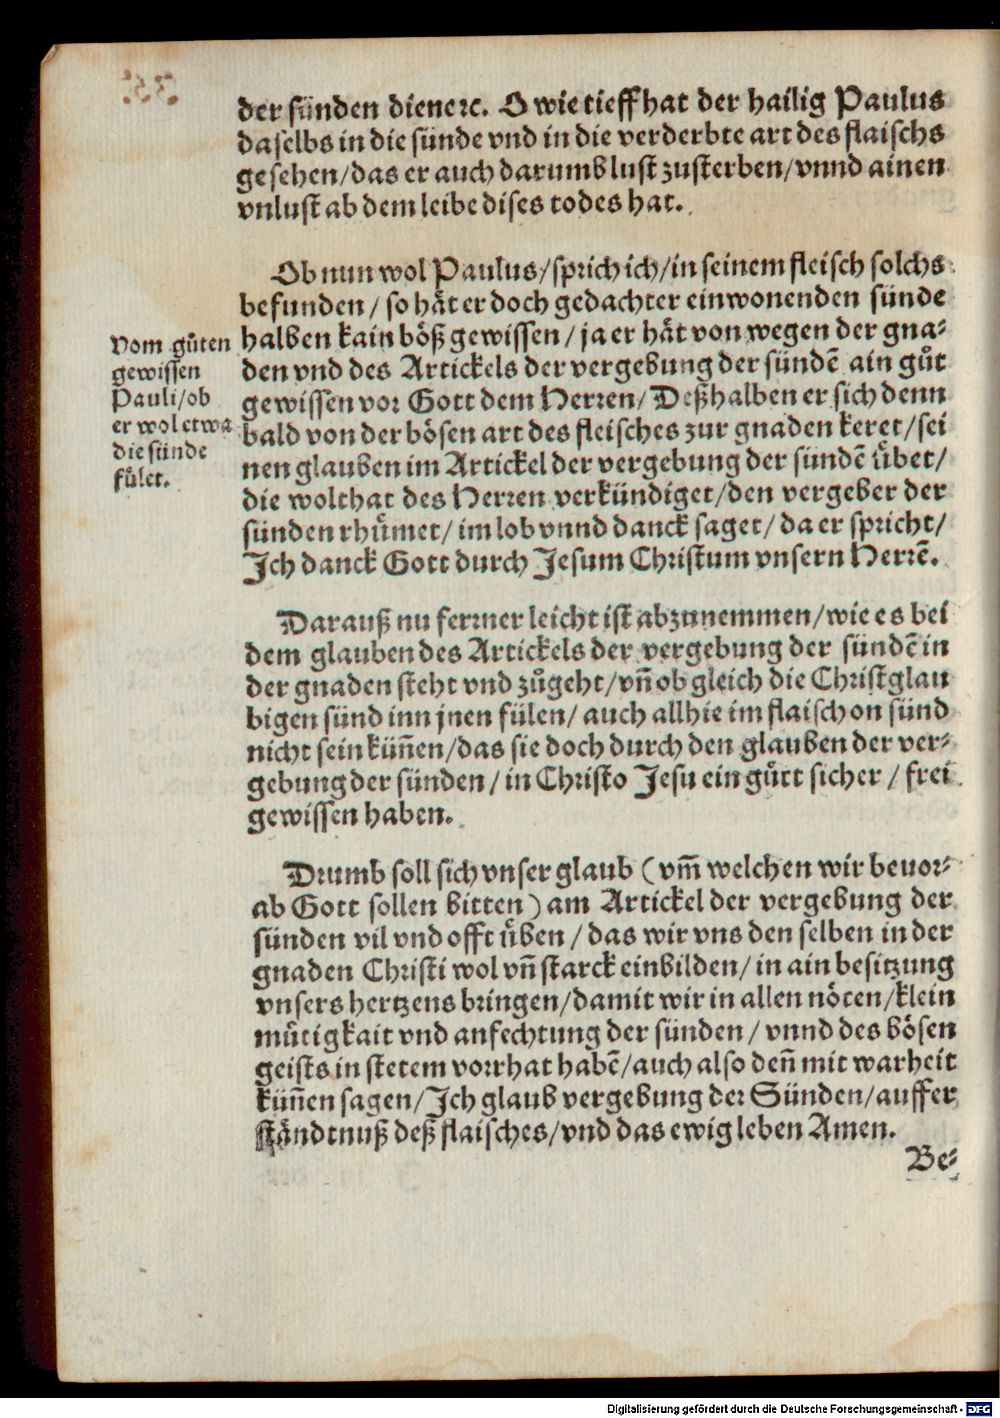 der sünden diene ꝛc. O wie tieff hat der hailig Paulus
daselbs in die sünde vnd in die verderbte art des flaischs
gesehen / das er auch darumb lust zusterben / vnnd ainen
vnlust ab dem leibe dises todes hat.
Ob nun wol Paulus / sprich ich / in seinem fleisch solchs
befunden / so hät er doch gedachter einwonenden sünde
halben kain böß gewissen / ja er hät von wegen der gna⸗
den vnd des Artickels der vergebung der sündē ain gůt
gewissen vor Gott dem Herren / Deßhalben er sich denn
bald von der bösen art des fleisches zur gnaden keret / sei
nen glauben im Artickel der vergebung der sündē ůbet /
die wolthat des Herren verkündiget / den vergeber der
sünden rhůmet / im lob vnnd danck saget / da er spricht /
Ich danck Gott durch Jesum Christum vnsern Herrē.
Vom gůten
gewissen
Pauli / ob
er wol etwa
die sünde
fůlet.
Darauß nu ferrner leicht ist abzunemmen / wie es bei
dem glauben des Artickels der vergebung der sündē in
der gnaden steht vnd zůgeht / vñ ob gleich die Christglau
bigen sünd inn jnen fülen / auch allhie im flaisch on sünd
nicht sein küñen / das sie doch durch den glauben der ver⸗
gebung der sünden / in Christo Jesu ein gůtt sicher / frei
gewissen haben.
Drumb soll sich vnser glaub ( vm̃ welchen wir beuor⸗
ab Gott sollen bitten ) am Artickel der vergebung der
sünden vil vnd offt ůben / das wir vns den selben in der
gnaden Christi wol vñ starck einbilden / in ain besitzung
vnsers hertzens bringen / damit wir in allen nöten / klein
můtigkait vnd anfechtung der sünden / vnnd des bösen
geists in stetem vorrhat habē / auch also deñ mit warheit
küñen sagen / Ich glaub vergebung der Sünden / auffer
ständtnuß deß flaisches / vnd das ewig leben Amen.
Be⸗
Digitalisierung gefördert durch die Deutsche Forschungsgemeinschaft - DFG